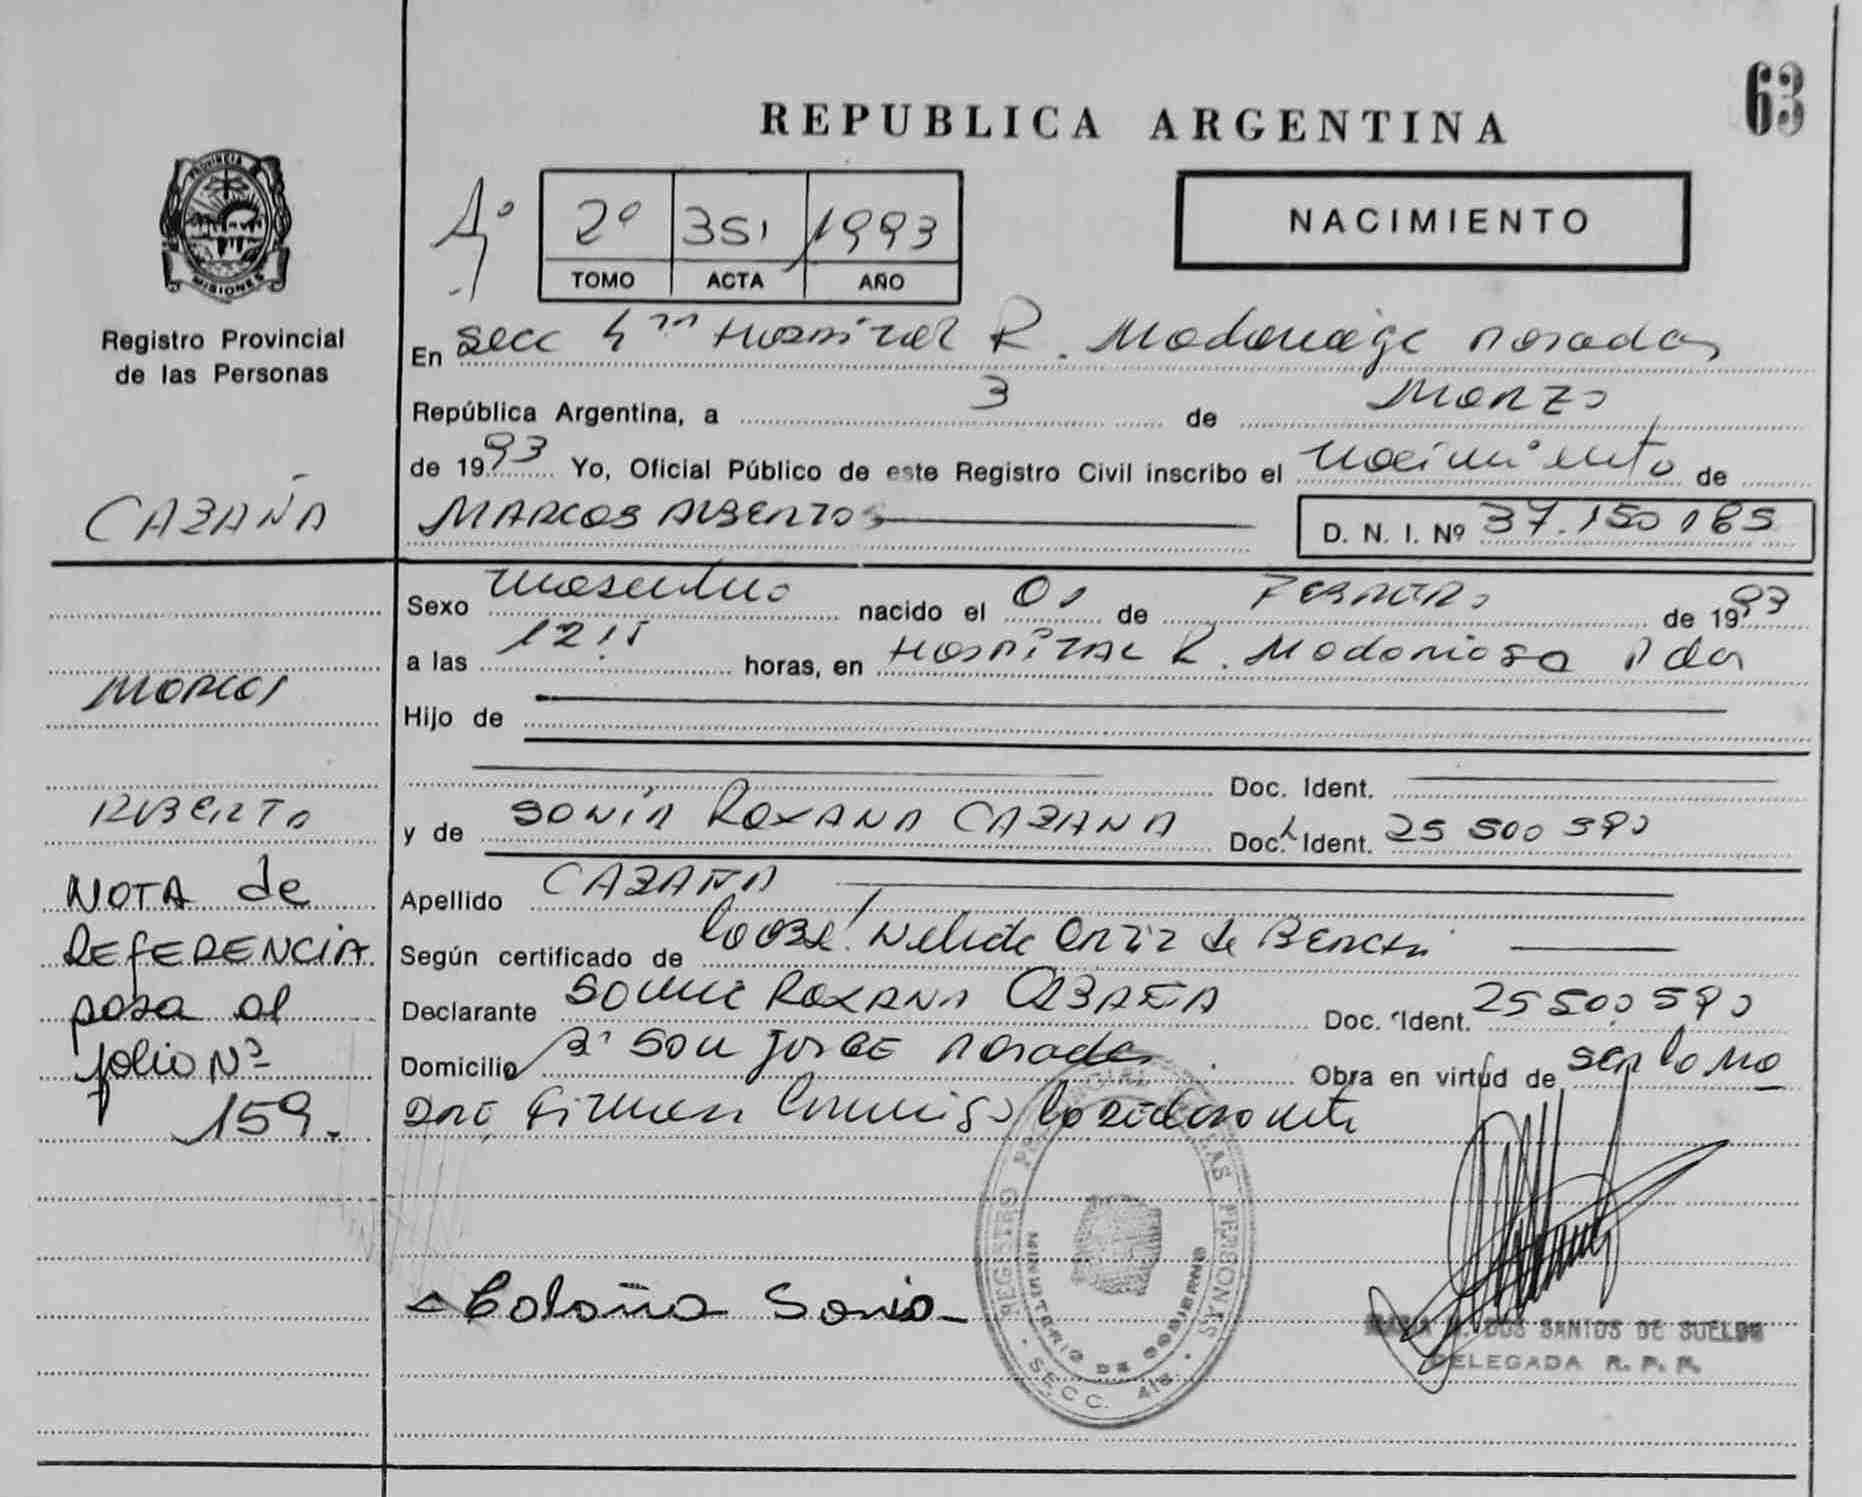 63
REPUBLICA ARGENTINA
PROVINCIA
MISIONES
Registro Provincial
de las Personas
2º 351 1993
TOMO ACTA AÑO
NACIMIENTO
En Secc 4ta Hospital R. Madariaga Posadas
República Argentina, a 3 de Marzo
de 1993 Yo, Oficial Público de este Registro Civil inscribo el nacimiento de
MARCOS ALBERTO
D. N. I. Nº 37.150 185
CABAÑA
MARCOS
ALBERTO
NOTA de
REFERENCIA
pasa al
folio Nº
159.
Sexo masculino nacido el 01 de Febrero de 1993
a las 12 15 horas, en Hospital R. Madariaga Pdas
Hijo de
Doc. Ident.
y de SONIA ROXANA CABAÑA Doc. Ident. 25 500 590
Apellido CABAÑA
Según certificado de Nelida Ortiz de
Declarante Sonia ROXANA CABAÑA Doc. Ident. 25 500 590
Domicilio San Jorge Posadas Obra en virtud de ser la ma
dre, firman conmigo la declarante
Cabaña Sonia
REGISTRO PROVINCIAL DE LAS PERSONAS
MINISTERIO DE GOBIERNO
SECC. 4ta
DOS SANTOS DE SUELDO
DELEGADA R. P. P.